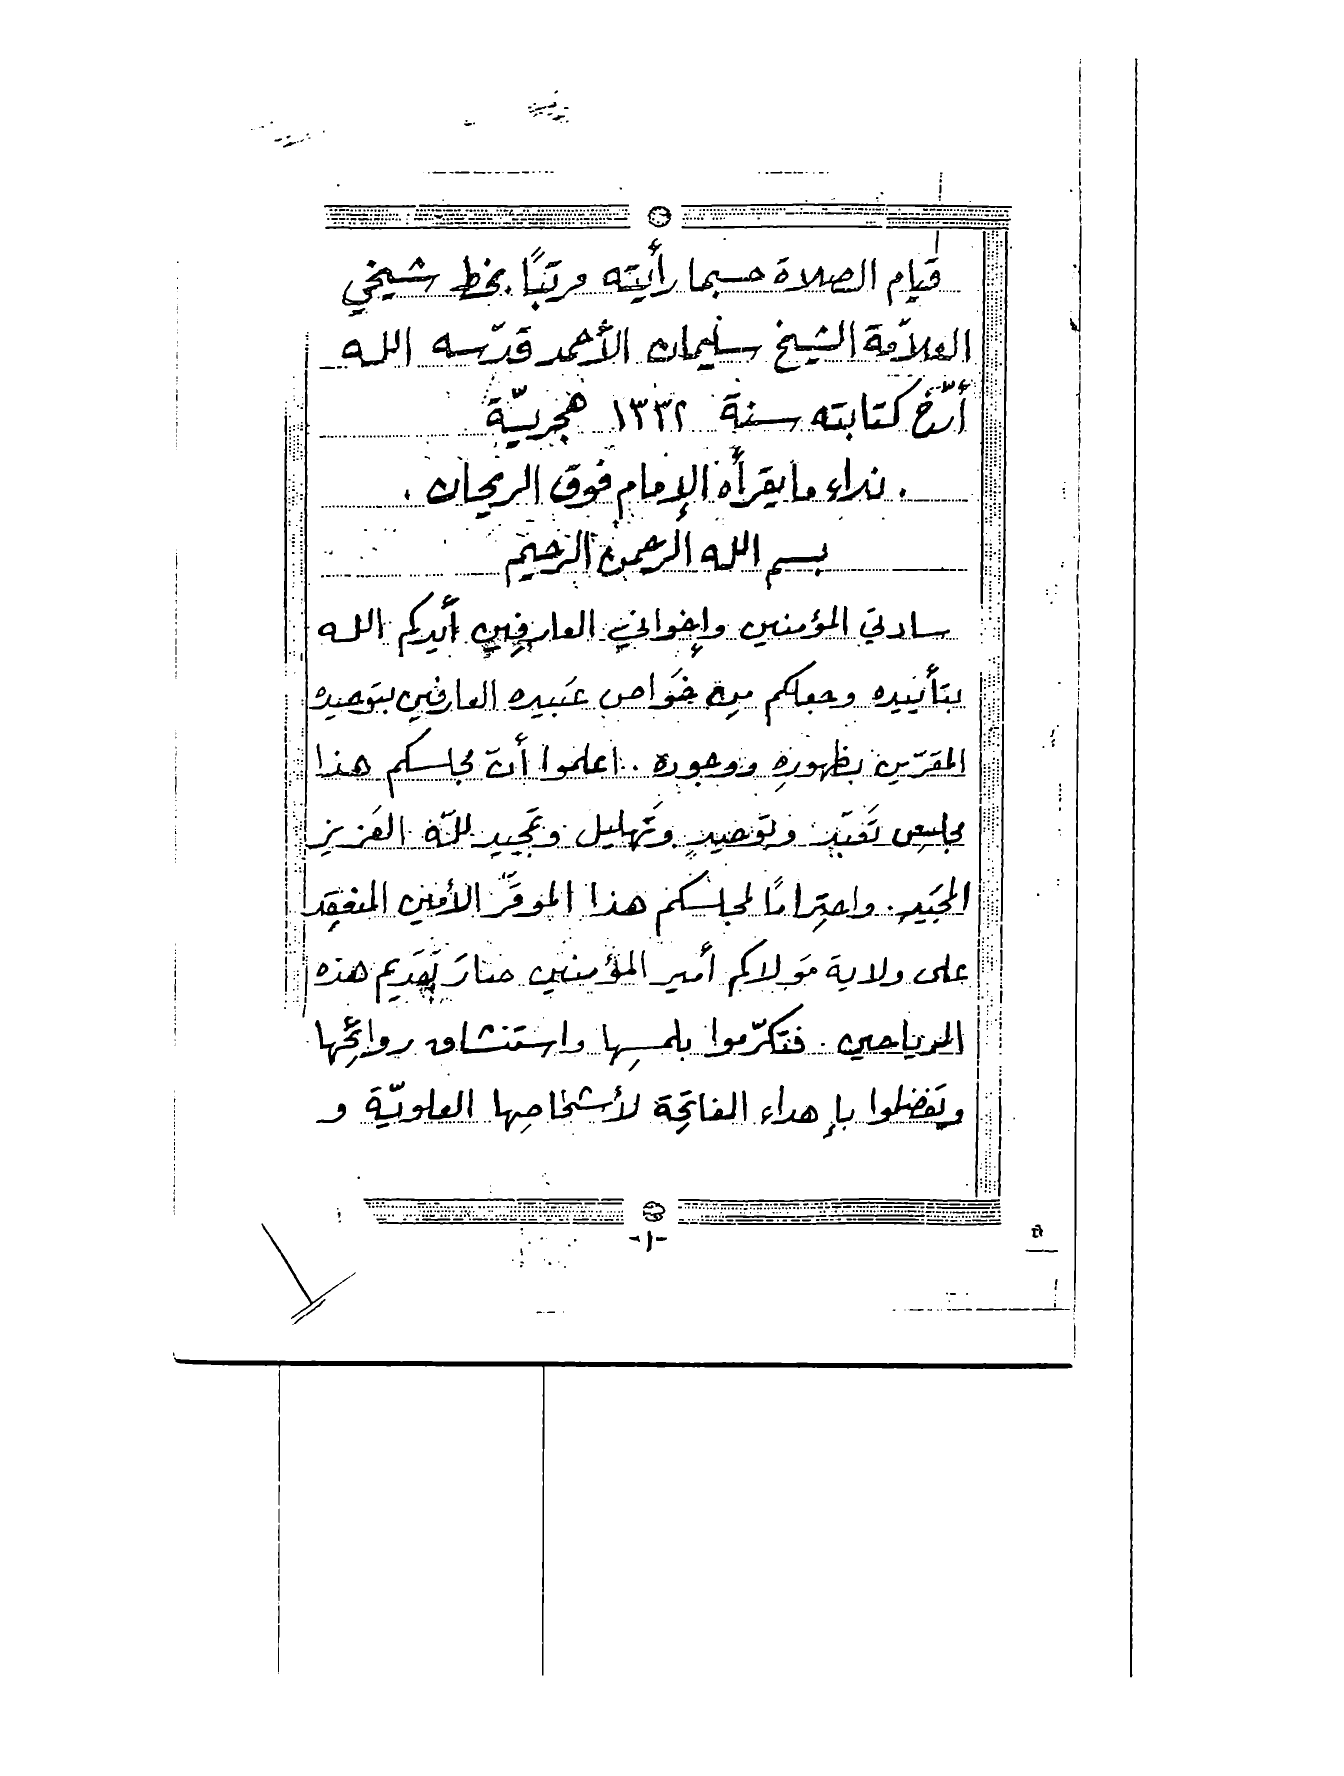 قيام الصلاة حسبما رأيته مرتبًا بخط شيخي
العلاّمة الشيخ سليمان الأحمد قدّسه الله
أرّخ كتابته سنة ١٣٣٢ هجريّة
. نداء ما يقرأه الإمام فوق الريحان .
بسم الله الرحمن الرحيم
سادتي المؤمنين وإخواني العارفين أيدكم الله
بتأييده وجعلكم من خَواص عَبيده العارفين بتوحيده
المقرّين بظهورهِ ووجوده . اعلموا أنّ مجلسكم هذا
مجلس تَعَبّد وتوحيدٍ وتَهليل وتمجيد للّه العَزيز
المجَيد . واحتِرامًا لمجلسكم هذا الموقَّر الأمين المنعقِد
على ولاية مَولاكم أمير المؤمنين صارَ تَقديم هذه
الرياحين . فتكرّموا بلمسِها واستنشاق روائِحها
وتَفضلوا بإهداء الفاتِحة لأشخاصِها العلويّة و
-١-